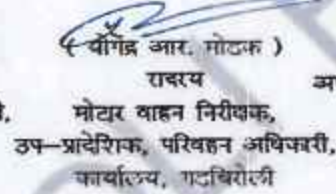 ( योगेंद्र आर. मोटक )
सदस्य
मोटार वाहन निरीक्षक,
उप-प्रादेशिक, परिवहन अधिकारी,
कार्यालय, गडचिरोली